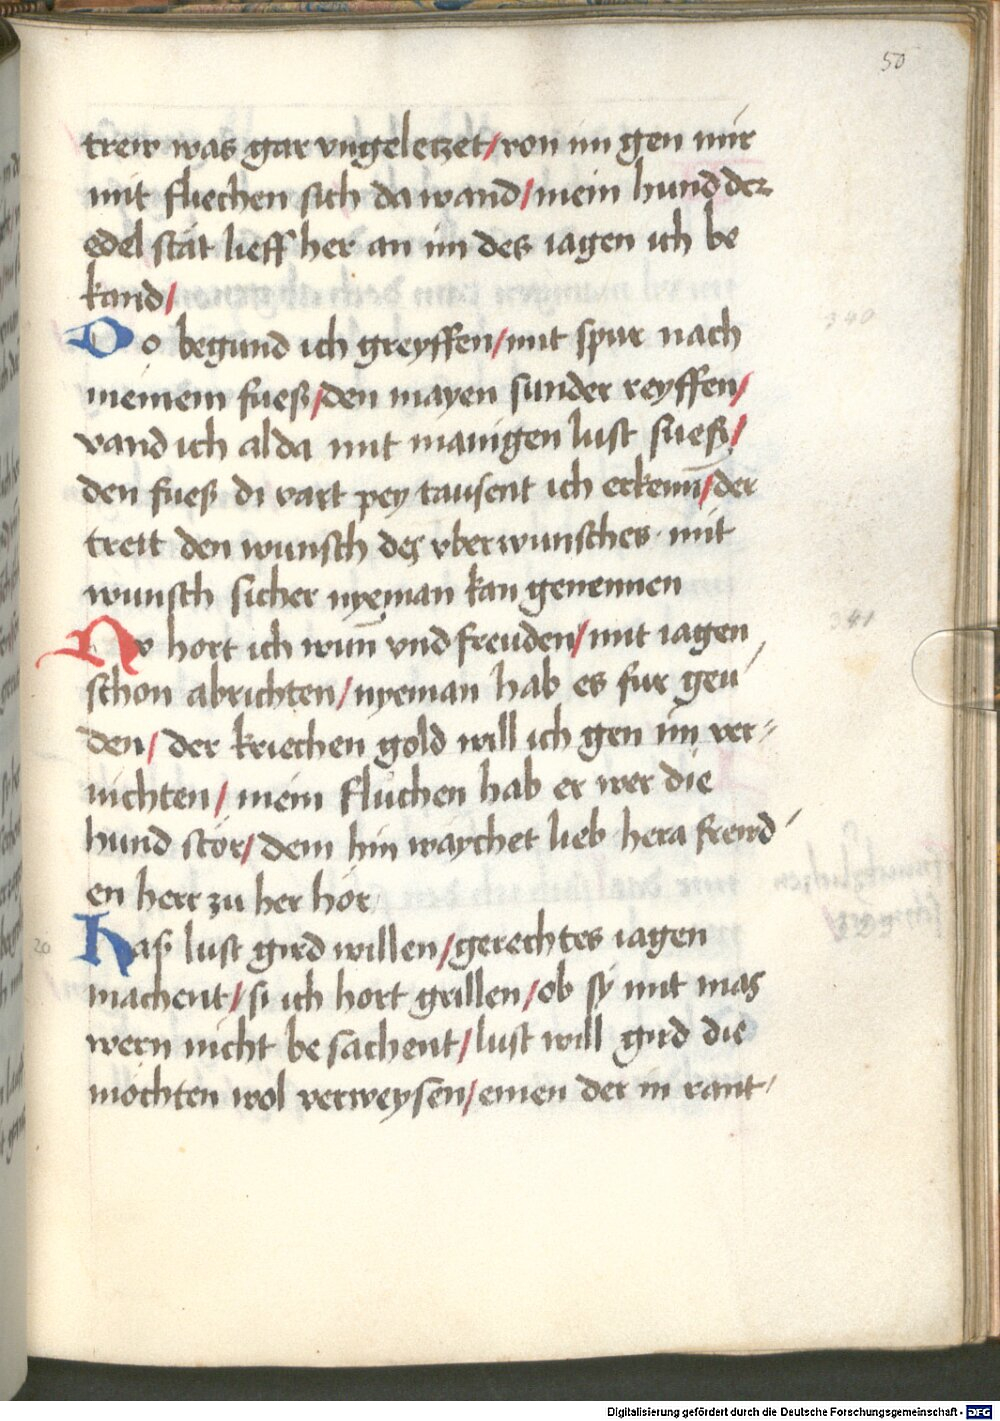 50
trew was gar vngeleczet/von im gen mir
mit fliechen sich da wand/mein hund der
edel stät lieff her an im des iagen ich be
kand/
Do begund ich greyffen/mit spur nach
340
meinem fueß/den mayen sunder reyffen/
vand ich alda mit manigen lust sueß/
den fueß di vart pey tausent ich erkenn̄/der
treit den wunsch des vberwunsches mit
wunsch sicher nyeman kan genennen
Nv hort ich wun̄ vnd freuden/mit iagen
341
schon abrichten/nyeman hab es fur geu
den/der kriechen gold will ich gen im ver
nichten/mein fluchen hab er wer die
hund stör/dem hin waychet lieb hera frewd
en herr zu her hör
20
Haß lust gird willen/gerechtes iagen
machent/si ich hort grillen/ob sy mit mas
wern nicht be sachent/lust will gird die
mochten wol verweysen/einen der in rant
Digitalisierung gefördert durch die Deutsche Forschungsgemeinschaft - DFG